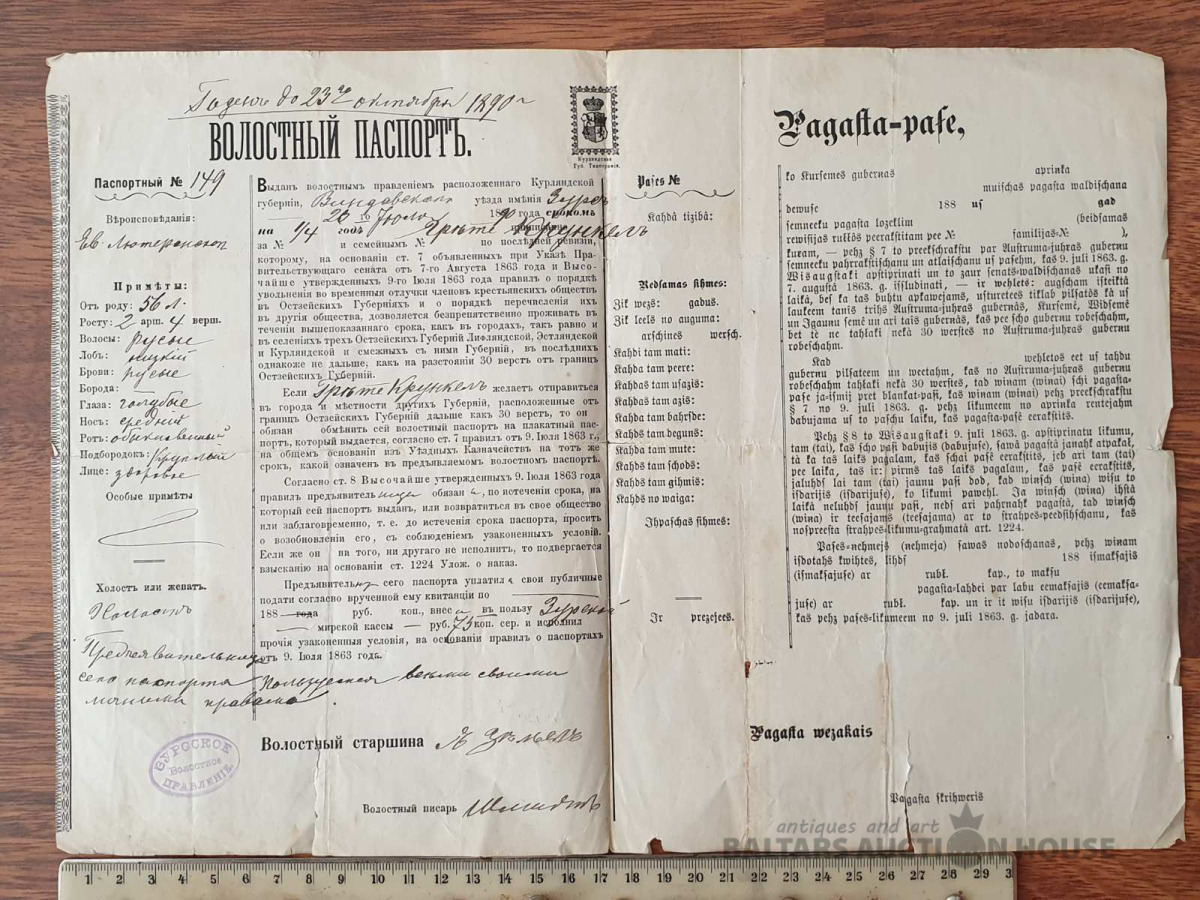 Годенъ до 23го октября 1890 г
ВОЛОСТНЫЙ ПАСПОРТЪ.
Курляндская
Губ. Типографія.
Паспортный № 149
Вѣроисповѣданія:
Ев. Лютеранской
Примѣты:
Отъ роду: 56 л.
Росту: 2 арш. 4 верш.
Волосы: русые
Лобъ: низкій
Брови: русые
Борода:
Глаза: голубые
Носъ: средній
Ротъ: обыкновенный
Подбородокъ: круглый
Лице: здоровое
Особые примѣты
Холостъ или женатъ.
Холостъ
Предъявительница
сего паспорта пользуется всѣми своими
правами.
Выданъ волостнымъ правленіемъ расположеннаго Курляндской
губерніи, Виндавскаго уѣзда имѣнія Зурсъ
23 Іюля 1890 года срокомъ
на 1/4 годъ Грѣте Крункелъ
за № и семейнымъ № по послѣдней ревизіи,
которому, на основаніи ст. 7 объявленныхъ при Указѣ Пра-
вительствующего сената отъ 7-го Августа 1863 и Высо-
чайше утвержденныхъ 9-го Іюля 1863 года правилъ о порядкѣ
увольненія во временныя отлучки членовъ крестьянскихъ обществъ
въ Остзейскихъ Губерніяхъ и о порядкѣ перечисленія ихъ
въ другія общества, дозволяется безпрепятственно проживать въ
теченіи вышепоказаннаго срока, какъ въ городахъ, такъ равно и
въ селеніяхъ трехъ Остзейскихъ Губерній Лифляндской, Эстляндской
и Курляндской и смежныхъ съ ними Губерній, въ послѣднихъ
однакоже не дальше, какъ на разстояніи 30 верстъ отъ границъ
Остзейскихъ Губерній.
Если Грѣте Крункелъ желаетъ отправиться
въ города и мѣстности другихъ Губерній, расположенные отъ
границъ Остзейскихъ Губерній дальше какъ 30 верстъ, то он
обязан обмѣнить сей волостной паспортъ на плакатный пас-
портъ, который выдается, согласно ст. 7 правилъ отъ 9. Іюля 1863 г.,
на общемъ основаніи изъ Уѣздныхъ Казначействъ на тотъ же
срокъ, какой означенъ въ предъявляемомъ волостномъ паспортѣ.
Согласно ст. 8 Высочайше утвержденныхъ 9. Іюля 1863 года
правилъ предъявительница обязана, по истеченіи срока, на
который сей паспортъ выданъ, или возвратиться въ свое общество
или заблаговременно, т. е. до истеченія срока паспорта, просить
о возобновленіи его, съ соблюденіемъ узаконенныхъ условій.
Если же он ни того, ни другаго не исполнит, то подвергается
взысканію на основаніи ст. 1224 Улож. о наказ.
Предъявительница сего паспорта уплатила свои публичные
подати согласно врученной ему квитанціи по
188 года руб. коп., внесла въ пользу Зурской
мирской кассы — руб. 75 коп. сер. и исполнил
прочія узаконенныя условія, на основаніи правилъ о паспортахъ
отъ 9. Іюля 1863 года.
Волостный старшина
Волостный писарь Шмидтъ
ЗУРСКОЕ
Волостное
ПРАВЛЕНІЕ.
Pagasta-pase,
Pases №
Kahdâ tizibâ:
Nedsamas sihmes:
Zik wezs: gadus.
Zik leels no auguma:
arschines wersch.
Kahdi tam mati:
Kahda tam peere:
Kahdas tam usazis:
Kahdas tam azis:
Kahda tam bahrsde:
Kahds tam deguns:
Kahda tam mute:
Kahds tam schods:
Kahds tam gihmis:
Kahds no waiga:
Ihpaschas sihmes:
Ir prezejees.
ko Kursemes gubernas aprinka
muischas pagasta waldischana
dewuse 188 us gad
semneeku pagasta lozeklim (beidsamas
rewisijas rullôs peerakstitam pee № familijas-№ ),
kuram, — pehz § 7 to preekschrakstu par Austruma-juhras gubernu
semneeku pahrrakstischanu un atlaischanu us pasehm, kas 9. juli 1863. g.
Wisaugstaki apstiprinati un to zaur senats-waldischanas ukasi no
7. augusta 1863. g. issludinati, — ir wehlets: augscham isteiktâ
laikâ, bes ka tas buhtu apkawejams, usturetees tiklab pilsatôs kâ us
laukeem tanîs trihs Austruma-juhras gubernâs, Kursemê, Widsemê
un Igaunu semê un ari tais gubernâs, kas pee scho gubernu robeschahm,
bet tê ne tahlaki nekâ 30 werstes no Austruma-juhras gubernu
robeschahm.
Kad wehletos eet us tahdu
gubernu pilsateem un weetahm, kas no Austruma-juhras gubernu
robeschahm tahlaki nekâ 30 werstes, tad winam (winai) schi pagasta-
pase ja-ismij pret blankat-pasi, kas winam (winai) pehz preekschrakstu
§ 7 no 9. juli 1863. g. pehz likumeem no aprinka rentejahm
dabujama us to paschu laiku, kas pagasta-pasê eerakstits.
Pehz § 8 to Wisaugstaki 9. juli 1863. g. apstiprinatu likumu,
tam (tai), kas scho pasi dabujis (dabujuse), sawâ pagastâ janahk atpakal,
tâ ka tas laiks pagalam, kas schai pasê eerakstits, jeb ari tam (tai)
pee laika, tas ir: pirms tas laiks pagalam, kas pasê eerakstits,
jaluhds lai tam (tai) jaunu pasi dod, kad winsch (wina) wisu to
isdarijis (isdarijuse), ko likumi pawehl. Ja winsch (wina) ihstâ
laikâ neluhds jaunu pasi, neds ari pahrnahk pagastâ, tad winsch
(wina) ir teesajams (teesajama) ar to strahpes-peedsihschanu, kas
nospreesta strahpes-likumu-grahmatâ art. 1224.
Pases-nehmejs (nehmeja) sawas nodoschanas, pehz winam
isdotahs kwihtes, lihds 188 ismaksajis
(ismaksajuse) ar rubl. kap., to maksu
pagasta-lahdei par labu eemaksajis (eemaksa-
juse) ar rubl. kap. un ir it wisu isdarijis (isdarijuse),
kas pehz pases-likumeem no 9. juli 1863. g. jadara.
Pagasta wezakais
Pagasta skrihweris
antiques and art
BALTARS AUCTION HOUSE
1 2 3 4 5 6 7 8 9 10 11 12 13 14 15 16 17 18 19 20 21 22 23 24 25 26 27 28 29 3